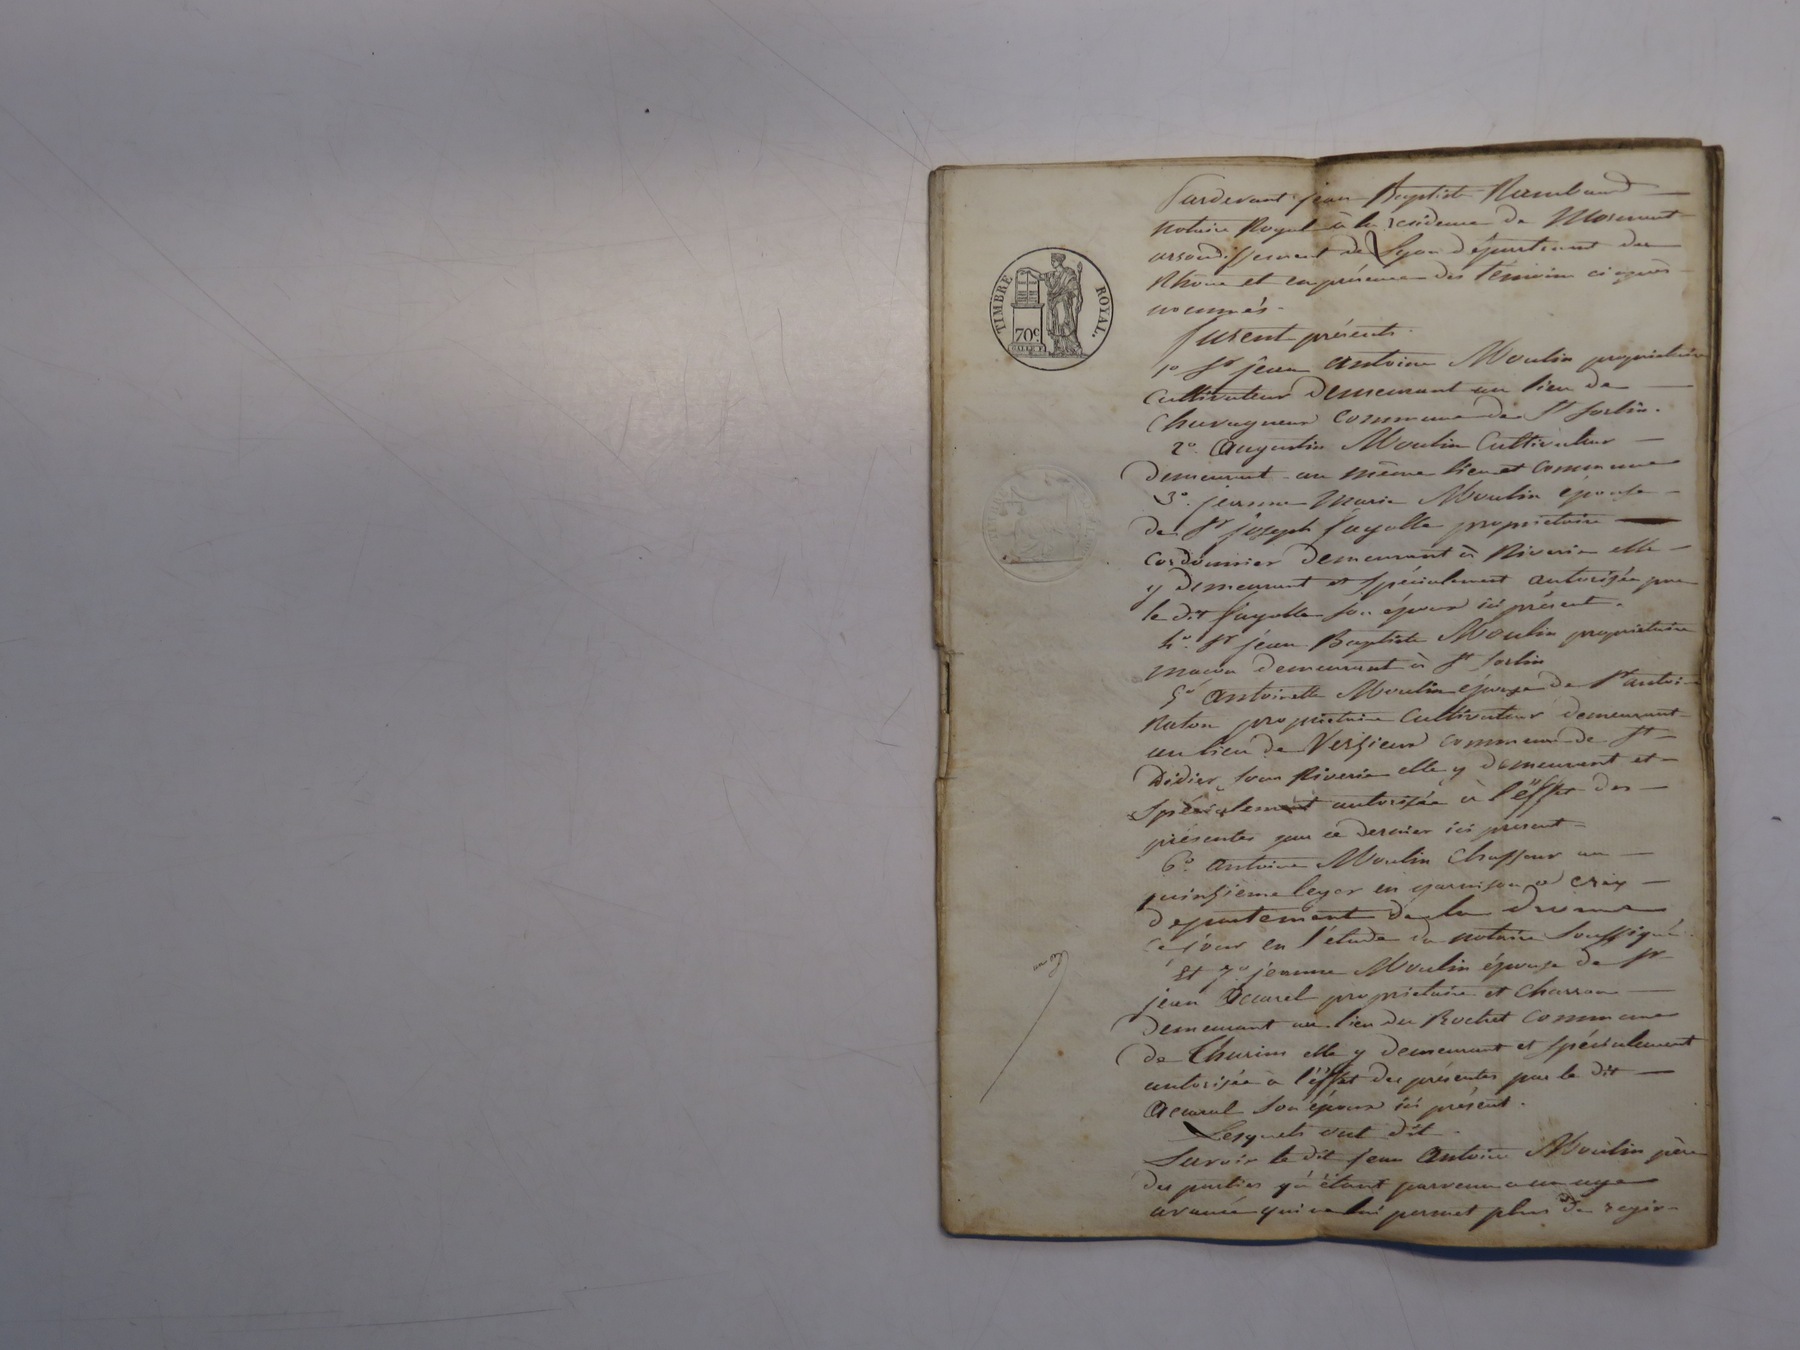 TIMBRE ROYAL.
70c
Pardevant jean Baptiste Rambaud
notaire Royal à la residence de Mornant
arrondissement de Lyon département du
Rhône et en présence des témoins ci après
nommés.
furent présents
1o Sr jean antoine Moulin propriétaire
Cultivateur Demeurant au lieu de
commune de St Sorlin.
2o. Augustin Moulin Cultivateur
Demeurant au même lieu et commune
3o. jeanne Marie Moulin épouse
de Sr joseph fayolle propriétaire
cordonnier demeurant à Riverie elle
y demeurant et spécialement autorisée par
le dit fayolle son époux ici présent.
4o. Sr jean Baptiste Moulin propriétaire
macon demeurant à St Sorlin
5o Antoinette Moulin épouse de Sr antoine
Raton propriétaire Cultivateur demeurant
au lieu de commune de St
Didier sous Riverie elle y demeurant et
spécialement autorisée à l'éffet des
présentes par ce dernier ici present
6o. antoine Moulin Chasseur au
quinzieme leger en garnison a crêx
departement de la Drome
ce jour en l'étude du notaire soussigné
Et 7o jeanne Moulin épouse de Sr
jean propriétaire et charron
demeurant au lieu du Rochet commune
de Thurins elle y demeurant et spécialement
autorisée à l'éffet des présentes par le dit
son époux ici présent.
Lesquels ont dit.
Savoir le dit jean Antoine Moulin père
des parties qu'étant parvenu a un age
avancé qui ne lui permet plus de regir